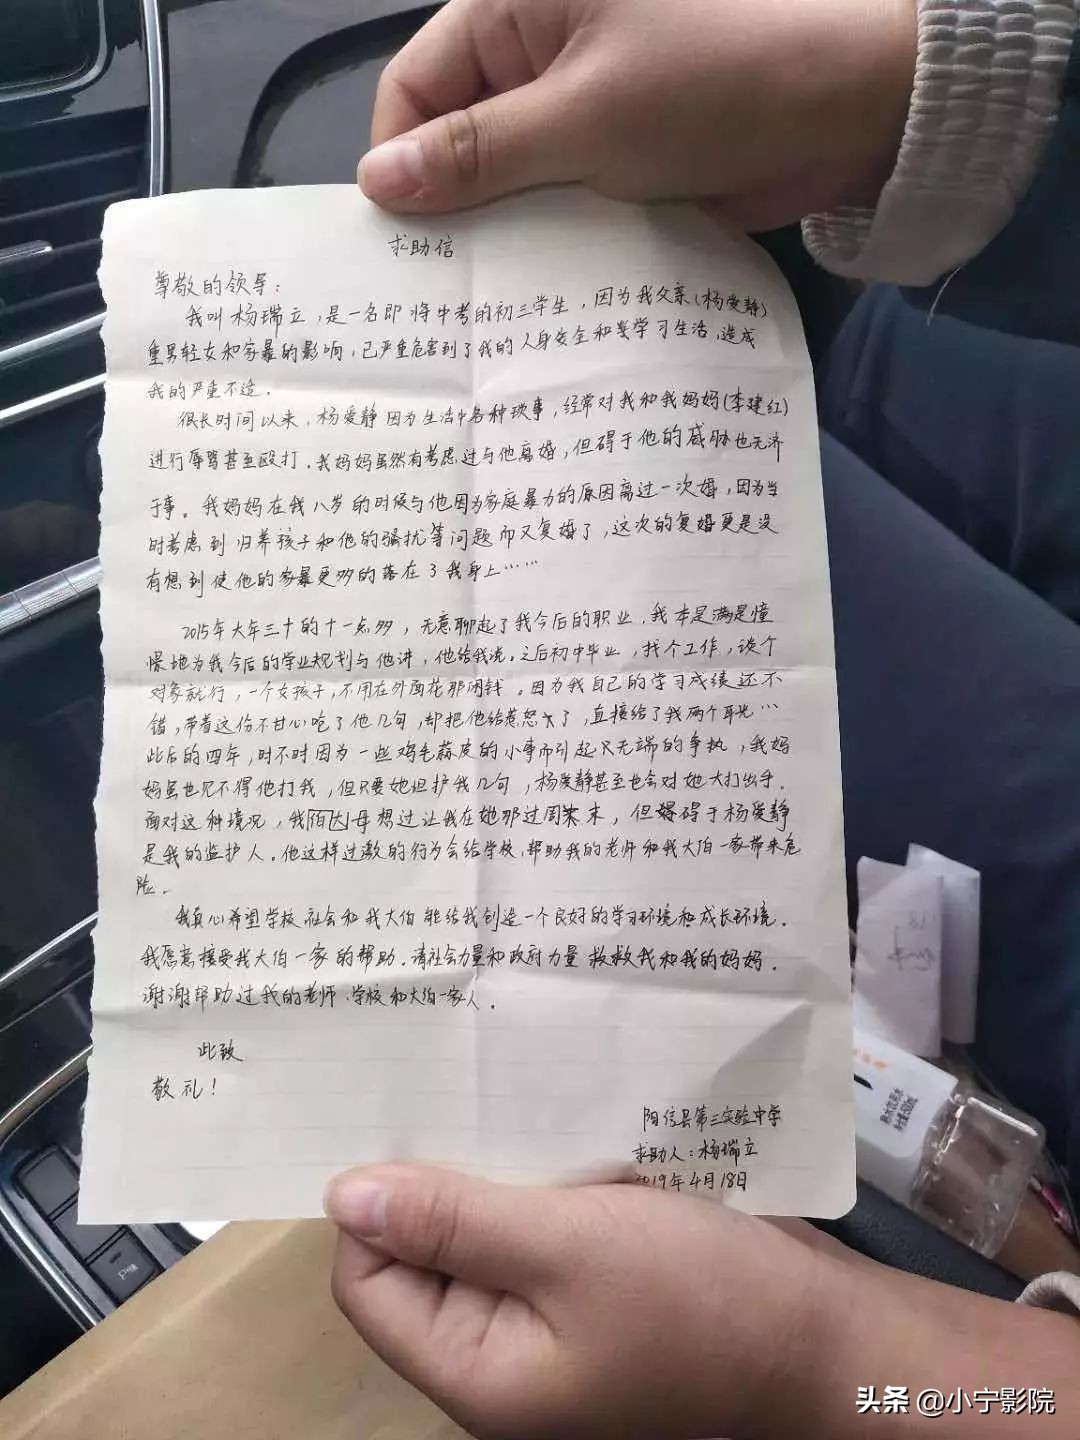 求助信
尊敬的领导：
我叫杨瑞立，是一名即将中考的初三学生，因为我父亲(杨爱静)
重男轻女和家暴的影响，已严重危害到了我的人身安全和学习生活，造成
我的严重不适。
很长时间以来，杨爱静因为生活中各种琐事，经常对我和我妈妈(李建红)
进行辱骂甚至殴打。我妈妈虽然有考虑过与他离婚，但碍于他的威胁也无济
于事。我妈妈在我八岁的时候与他因为家庭暴力的原因离过一次婚，因为当
时考虑到归养孩子和他的骚扰等问题而又复婚了，这次的复婚更是没
有想到使他的家暴更多的落在了我身上……
2015年大年三十的十一点多，无意聊起了我今后的职业，我本是满是憧
憬地为我今后的学业规划与他讲，他给我说。之后初中毕业，找个工作，谈个
对象就行，一个女孩子，不用在外面花那闲钱。因为我自己的学习成绩还不
错，带着这份不甘心吃了他几句，却把他给惹怒了，直接给了我两个耳光…
此后的四年，时不时因为一些鸡毛蒜皮的小事而引起无端的争执，我妈
妈虽也见不得他打我，但只要她袒护我几句，杨爱静甚至也会对她大打出手。
面对这种境况，我伯母想过让我在她那过周末，但碍于杨爱静
是我的监护人。他这样过激的行为会给学校、帮助我的老师和我大伯一家带来危
险。
我真心希望学校社会和我大伯能给我创造一个良好的学习环境和成长环境。
我愿意接受我大伯一家的帮助。请社会力量和政府力量救救我和我的妈妈。
谢谢帮助过我的老师、学校和大伯一家人。
此致
敬礼！
阳信县第三实验中学
求助人：杨瑞立
2019年4月18日
头条 @小宁影院